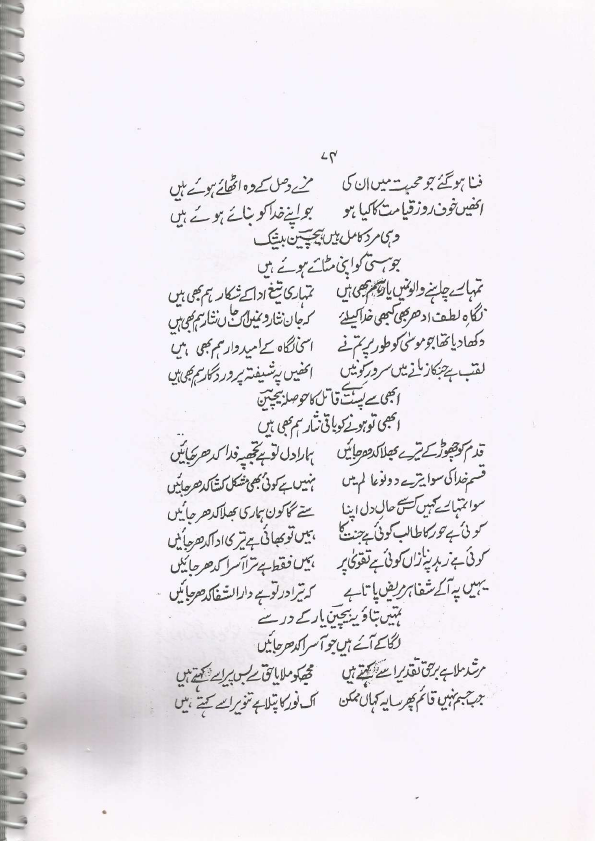 ۷۴
فنا ہو گئے جو محبت میں ان کی مزے وصل کے وہ اٹھائے ہوئے ہیں
انھیں خوف روز قیامت کا کیا ہو جو اپنے خدا کو بنائے ہوئے ہیں
وہی مرد کامل ہیں بیچین بیشک
جو ہستی کو اپنی مٹائے ہوئے ہیں
تمہارے چاہنے والونمیں یار ہم بھی ہیں تمہاری تیغ ادا کے شکار ہم بھی ہیں
نگاہ لطف ادھر بھی کبھی خدا کیلئے کہ جاں نثارونمیں اک جاں نثار ہم بھی ہیں
دکھا دیا تھا جو موسیٰ کو طور پر تم نے اسی نگاہ کے امیدوار ہم بھی ہیں
لقب ہے جنکا زمانے میں سرور کونین انھیں پہ شیفتہ پروردگار ہم بھی ہیں
ابھی سے پست ہے قاتل کا حوصلہ بیچین
ابھی تو ہونے کو باقی نثار ہم بھی ہیں
قدم کو چھوڑ کے تیرے بھلا کدھر جائیں ہمارا دل تو ہے تجھپہ فدا کدھر جائیں
قسم خدا کی سوا تیرے دونو عالم میں نہیں ہے کوئی بھی مشکل کشا کدھر جائیں
سوا تمہارے کہیں کس سے حال دل اپنا سنے گا کون ہماری بھلا کدھر جائیں
کوئی ہے حور کا طالب کوئی ہے جنت کا ہمیں تو بھائی ہے تیری ادا کدھر جائیں
کوئی ہے زہد پہ نازاں کوئی ہے تقویٰ پر ہمیں فقط ہے ترا آسرا کدھر جائیں
یہیں پہ آ کے شفا ہر مریض پاتا ہے کہ تیرا در تو ہے دارالشفا کدھر جائیں
تمہیں بتاؤ یہ بیچین یار کے در سے
لگا کے آئے ہیں جو آسرا کدھر جائیں
مرشد ملا ہے برحق تقدیر اسے کہتے ہیں مجھکو ملایا حق سے بس پیر اسے کہتے ہیں
جب جسم نہیں قائم پھر سایہ کہاں ممکن اک نور کا پتلا ہے تنویر اسے کہتے ہیں